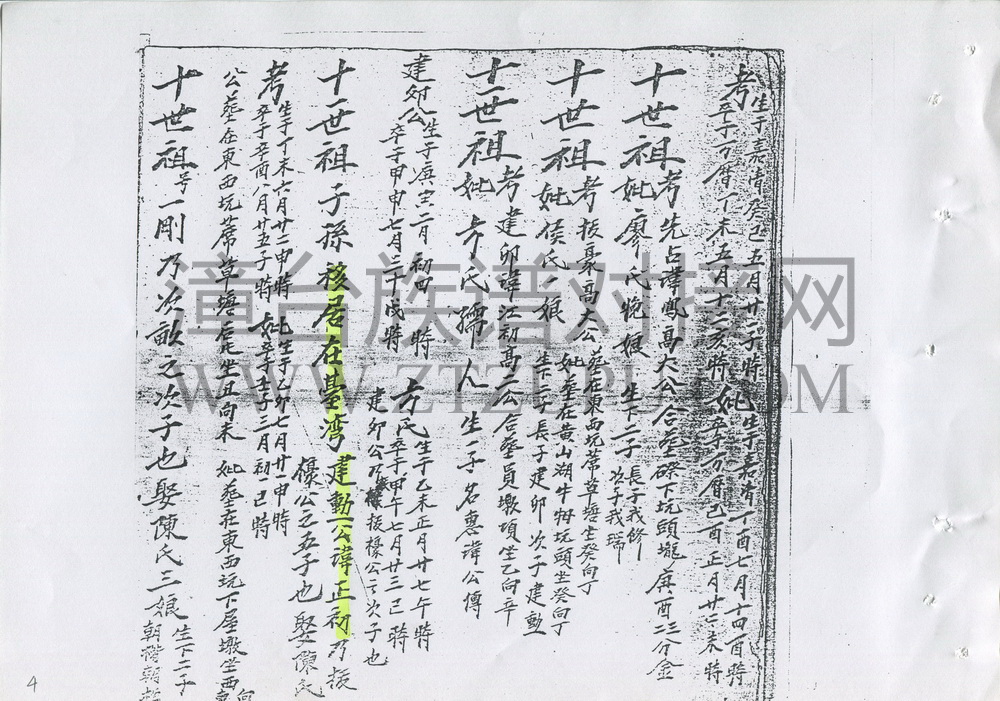 考生于嘉靖癸巳五月廿二子時 妣生于嘉靖丁酉七月十四酉時
卒于万曆丁未五月十二亥時 卒于万曆己酉正月廿二未時
十世祖考先占諱鳳高大公合塟磜下坑頭壠庚酉三分金
妣廖氏晚娘 生下二子 長子我修 次子我瑞
十世祖考拔稾高大公塟在東西坑蓆草塘坐癸向丁
妣侯氏一娘 妣塟在黄山湖牛牳坑頭坐癸向丁
生下二子 長子建卯 次子建勳
十一世祖考建卯諱江初高二公合塟員墩項坐乙向辛
妣方氏孺人 生一子 名惠諱公傳
建卯公生于庚寅二月初四時 方氏生于乙未正月廿七午時
卒于甲申七月三十戌時 卒于甲午七月廿三巳時
建卯公乃拔檺公之次子也
十一世祖子孫移居在臺湾建勳一公諱正初乃拔
檺公之五子也 娶陳氏
考生于丁未六月廿二申時 妣生于乙卯七月廿一申時
卒于辛酉八月廿五子時 卒于壬子二月初一巳時
公塟在東西坑蓆草塘屋尾坐丑向未 妣塟在東西坑下屋墩坐西向
十世祖号一剛乃次畝之次子也 娶陳氏三娘 生下二子
朝階朝
4
漳台族谱对接网
WWW.ZTZUPU.COM